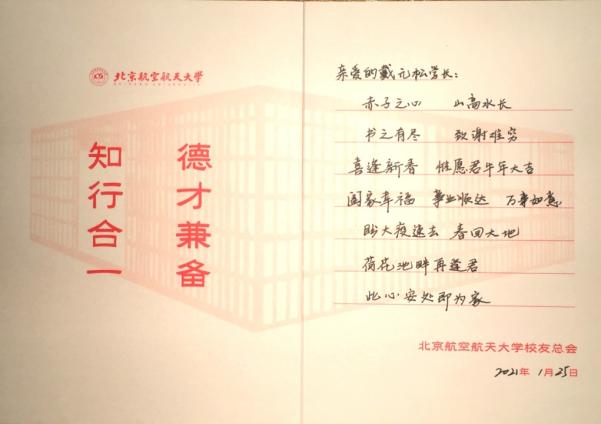 北京航空航天大学
BEIHANG UNIVERSITY
德才兼备
知行合一
亲爱的戴元松学长：
赤子之心 山高水长
书之有尽 致谢难穷
喜逢新春 惟愿君牛年大吉
阖家幸福 事业顺达 万事如意
盼大疫速去 春回大地
荷花池畔再逢君
此心安处即为家
北京航空航天大学校友总会
2021年 1月25日